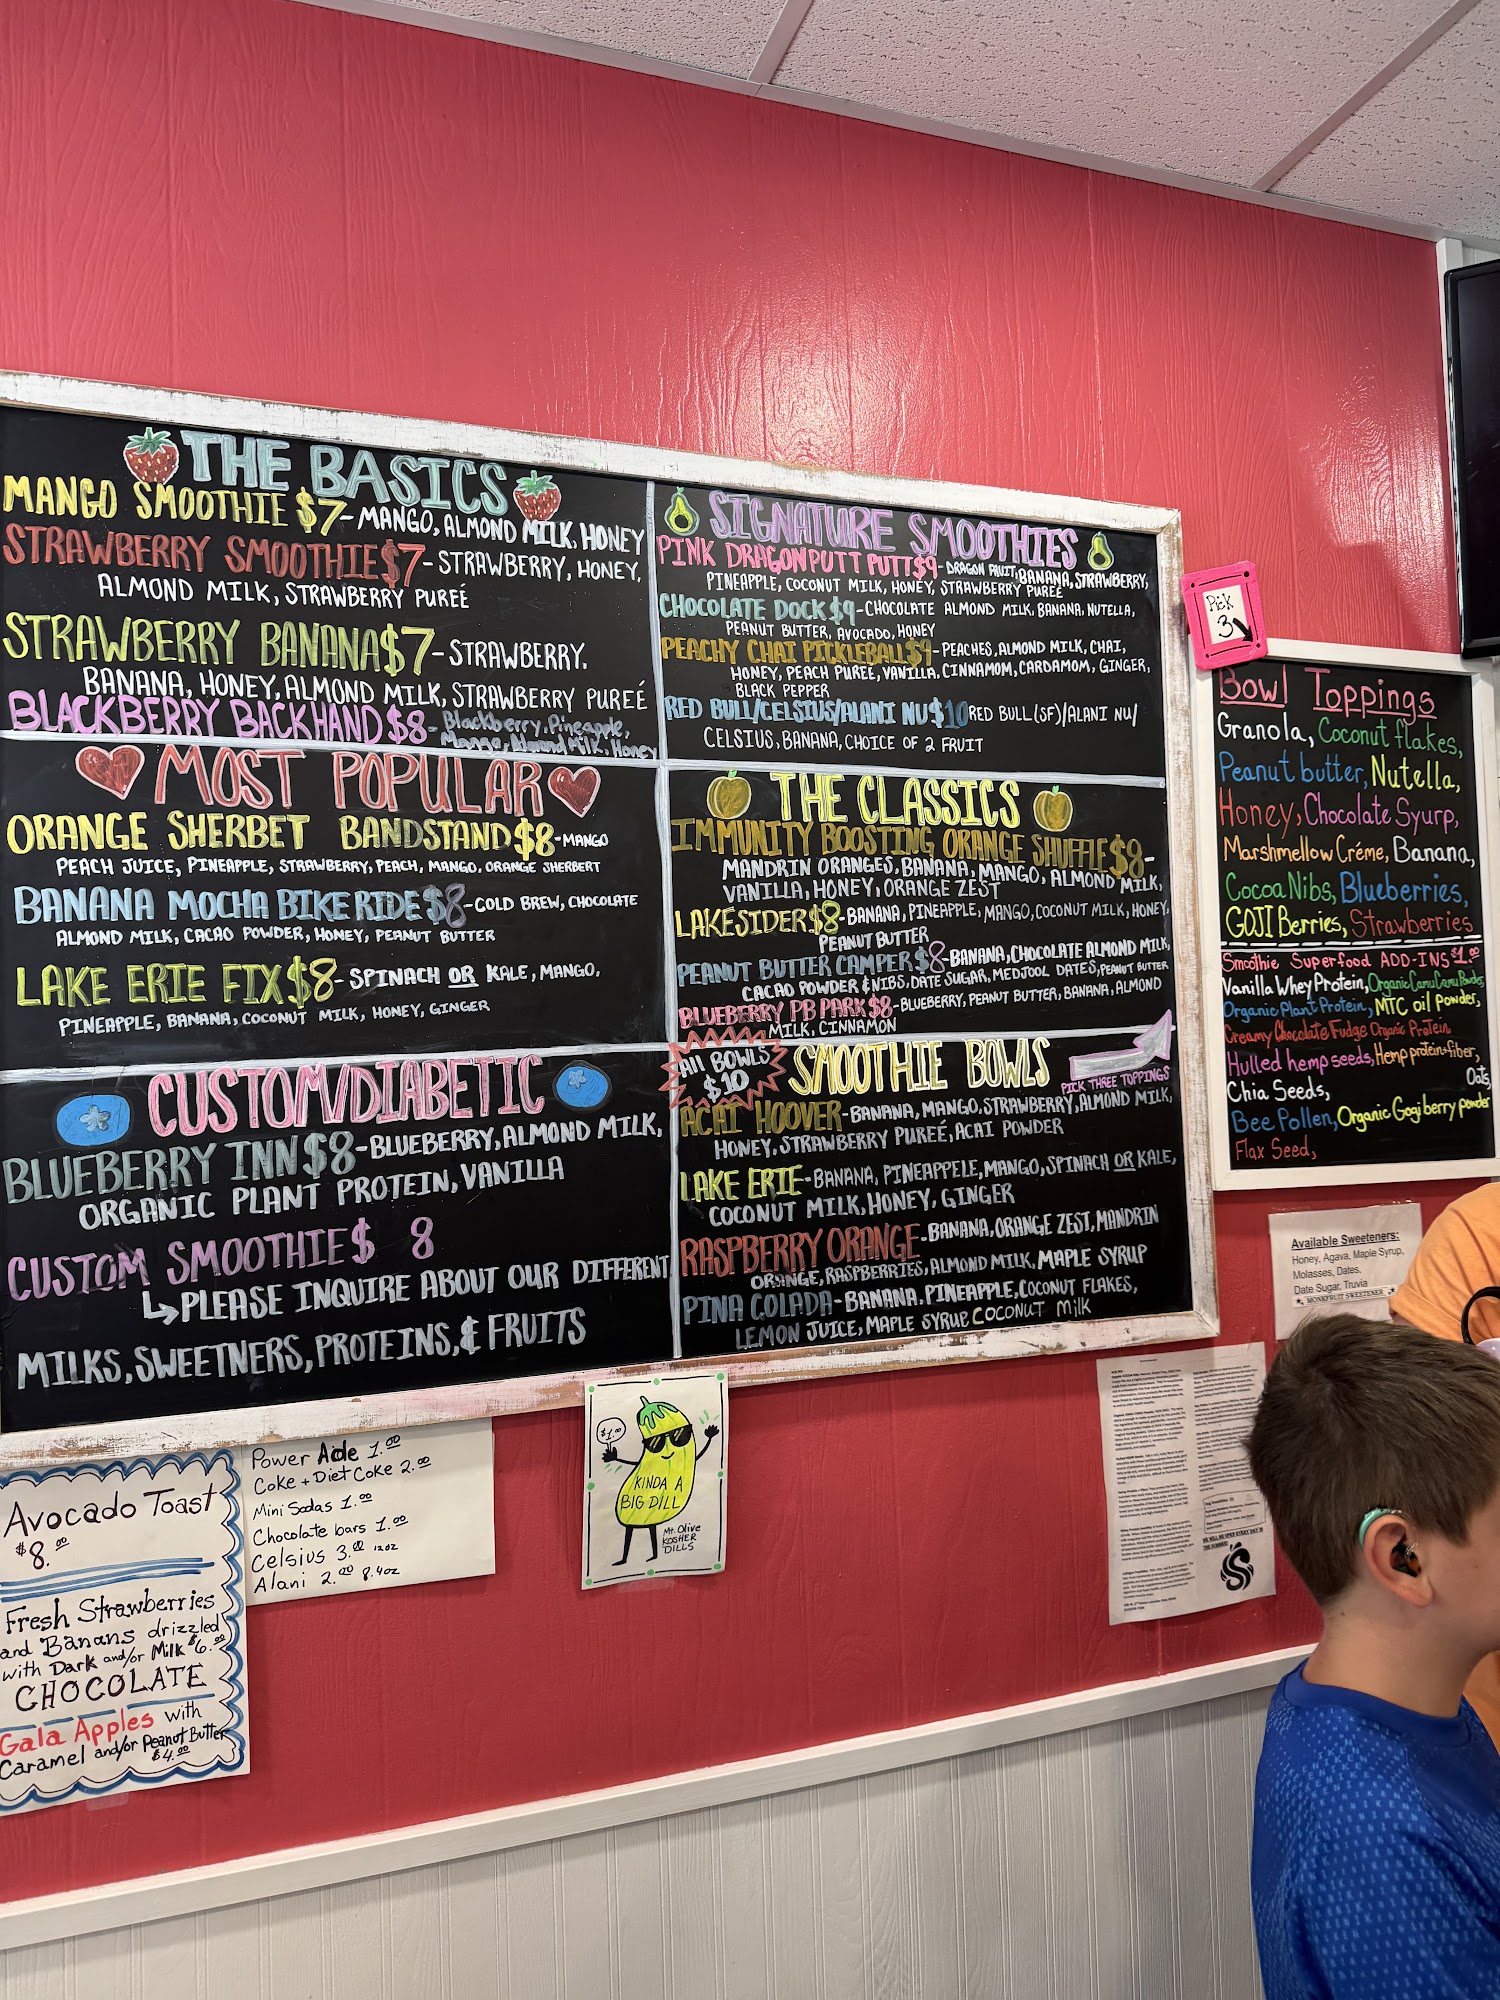 THE BASICS
MANGO SMOOTHIE $7-MANGO, ALMOND MILK, HONEY
STRAWBERRY SMOOTHIE $7-STRAWBERRY, HONEY,
ALMOND MILK, STRAWBERRY PUREÉ
STRAWBERRY BANANA $7-STRAWBERRY,
BANANA, HONEY, ALMOND MILK, STRAWBERRY PUREÉ
BLACKBERRY BACKHAND $8-Blackberry, Pineapple,
Mango, Almond Milk, Honey
MOST POPULAR
ORANGE SHERBET BANDSTAND $8-MANGO
PEACH JUICE, PINEAPPLE, STRAWBERRY, PEACH, MANGO, ORANGE SHERBERT
BANANA MOCHA BIKE RIDE $8-COLD BREW, CHOCOLATE
ALMOND MILK, CACAO POWDER, HONEY, PEANUT BUTTER
LAKE ERIE FIX $8-SPINACH OR KALE, MANGO,
PINEAPPLE, BANANA, COCONUT MILK, HONEY, GINGER
CUSTOM/DIABETIC
BLUEBERRY INN $8-BLUEBERRY, ALMOND MILK,
ORGANIC PLANT PROTEIN, VANILLA
CUSTOM SMOOTHIE $ 8
PLEASE INQUIRE ABOUT OUR DIFFERENT
MILKS, SWEETNERS, PROTEINS, & FRUITS
SIGNATURE SMOOTHIES
PINK DRAGON PUTT PUTT $9-DRAGON FRUIT, BANANA, STRAWBERRY,
PINEAPPLE, COCONUT MILK, HONEY, STRAWBERRY PUREÉ
CHOCOLATE DOCK $9-CHOCOLATE ALMOND MILK, BANANA, NUTELLA,
PEANUT BUTTER, AVOCADO, HONEY
PEACHY CHAI PICKLEBALL $9-PEACHES, ALMOND MILK, CHAI,
HONEY, PEACH PUREÉ, VANILLA, CINNAMOM, CARDAMOM, GINGER,
BLACK PEPPER
RED BULL/CELSIUS/ALANI NU $10 RED BULL(SF)/ALANI NU/
CELSIUS, BANANA, CHOICE OF 2 FRUIT
THE CLASSICS
IMMUNITY BOOSTING ORANGE SHUFFLE $8-
MANDRIN ORANGES, BANANA, MANGO, ALMOND MILK,
VANILLA, HONEY, ORANGE ZEST
LAKESIDER $8-BANANA, PINEAPPLE, MANGO, COCONUT MILK, HONEY,
PEANUT BUTTER
PEANUT BUTTER CAMPER $8-BANANA, CHOCOLATE ALMOND MILK,
CACAO POWDER & NIBS, DATE SUGAR, MEDJOOL DATES, PEANUT BUTTER
BLUEBERRY PB PARK $8-BLUEBERRY, PEANUT BUTTER, BANANA, ALMOND
MILK, CINNAMON
All BOWLS
$10
SMOOTHIE BOWLS
PICK THREE TOPPINGS
ACAI HOOVER-BANANA, MANGO, STRAWBERRY, ALMOND MILK,
HONEY, STRAWBERRY PUREÉ, ACAI POWDER
LAKE ERIE-BANANA, PINEAPPELE, MANGO, SPINACH OR KALE,
COCONUT MILK, HONEY, GINGER
RASPBERRY ORANGE-BANANA, ORANGE ZEST, MANDRIN
ORANGE, RASPBERRIES, ALMOND MILK, MAPLE SYRUP
PINA COLADA-BANANA, PINEAPPLE, COCONUT FLAKES,
LEMON JUICE, MAPLE SYRUP COCONUT Milk
Pick
3
Bowl Toppings
Granola, Coconut flakes,
Peanut butter, Nutella,
Honey, Chocolate Syurp,
Marshmellow Créme, Banana,
Cocoa Nibs, Blueberries,
GOJI Berries, Strawberries
Smoothie Superfood ADD-INS $1.00
Vanilla Whey Protein, Organic Camu Camu Powder,
Organic Plant Protein, MTC oil Powder,
Creamy Chocolate Fudge Organic Protein
Hulled hemp seeds, Hemp protein+fiber,
Chia Seeds, Oats,
Bee Pollen, Organic Gogi berry powder
Flax Seed,
Available Sweeteners:
Honey, Agava, Maple Syrup,
Molasses, Dates,
Date Sugar, Truvia
MONKFRUIT SWEETENER
Avocado Toast
$8.00
Fresh Strawberries
and Banans drizzled
with Dark and/or Milk $6.00
CHOCOLATE
Gala Apples with
Caramel and/or Peanut Butter
$4.00
Power Ade 1.00
Coke + Diet Coke 2.00
Mini Sodas 1.00
Chocolate bars 1.00
Celsius 3.00 12oz
Alani 2.00 8.4oz
$1.00
KINDA A
BIG DILL
Mt. Olive
KOSHER
DILLS
WE WILL BE OPEN EVERY DAY IN
THE SUMMER!